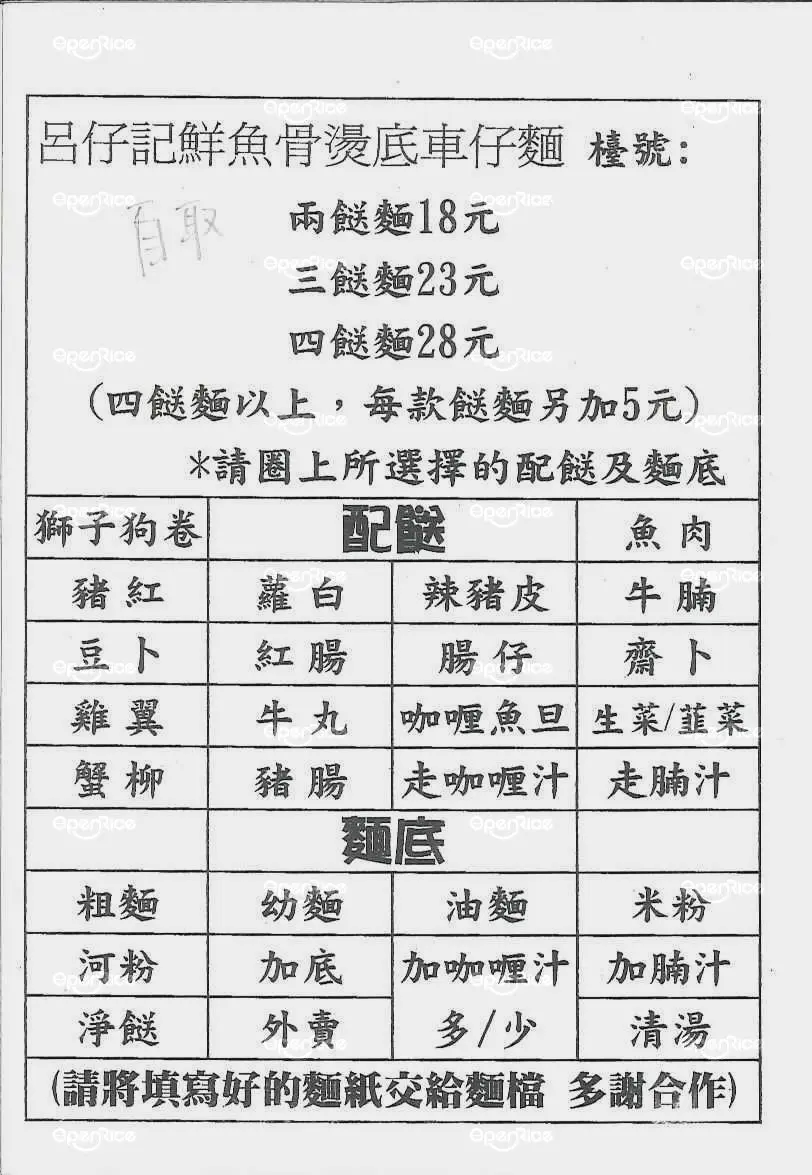 呂仔記鮮魚骨燙底車仔麵 檯號:
自取
兩餸麵18元
三餸麵23元
四餸麵28元
(四餸麵以上，每款餸麵另加5元)
*請圈上所選擇的配餸及麵底
獅子狗卷 配餸 魚肉
豬紅 蘿白 辣豬皮 牛腩
豆卜 紅腸 腸仔 齋卜
雞翼 牛丸 咖喱魚旦 生菜/韮菜
蟹柳 豬腸 走咖喱汁 走腩汁
麵底
粗麵 幼麵 油麵 米粉
河粉 加底 加咖喱汁 加腩汁
淨餸 外賣 多/少 清湯
(請將填寫好的麵紙交給麵檔 多謝合作)